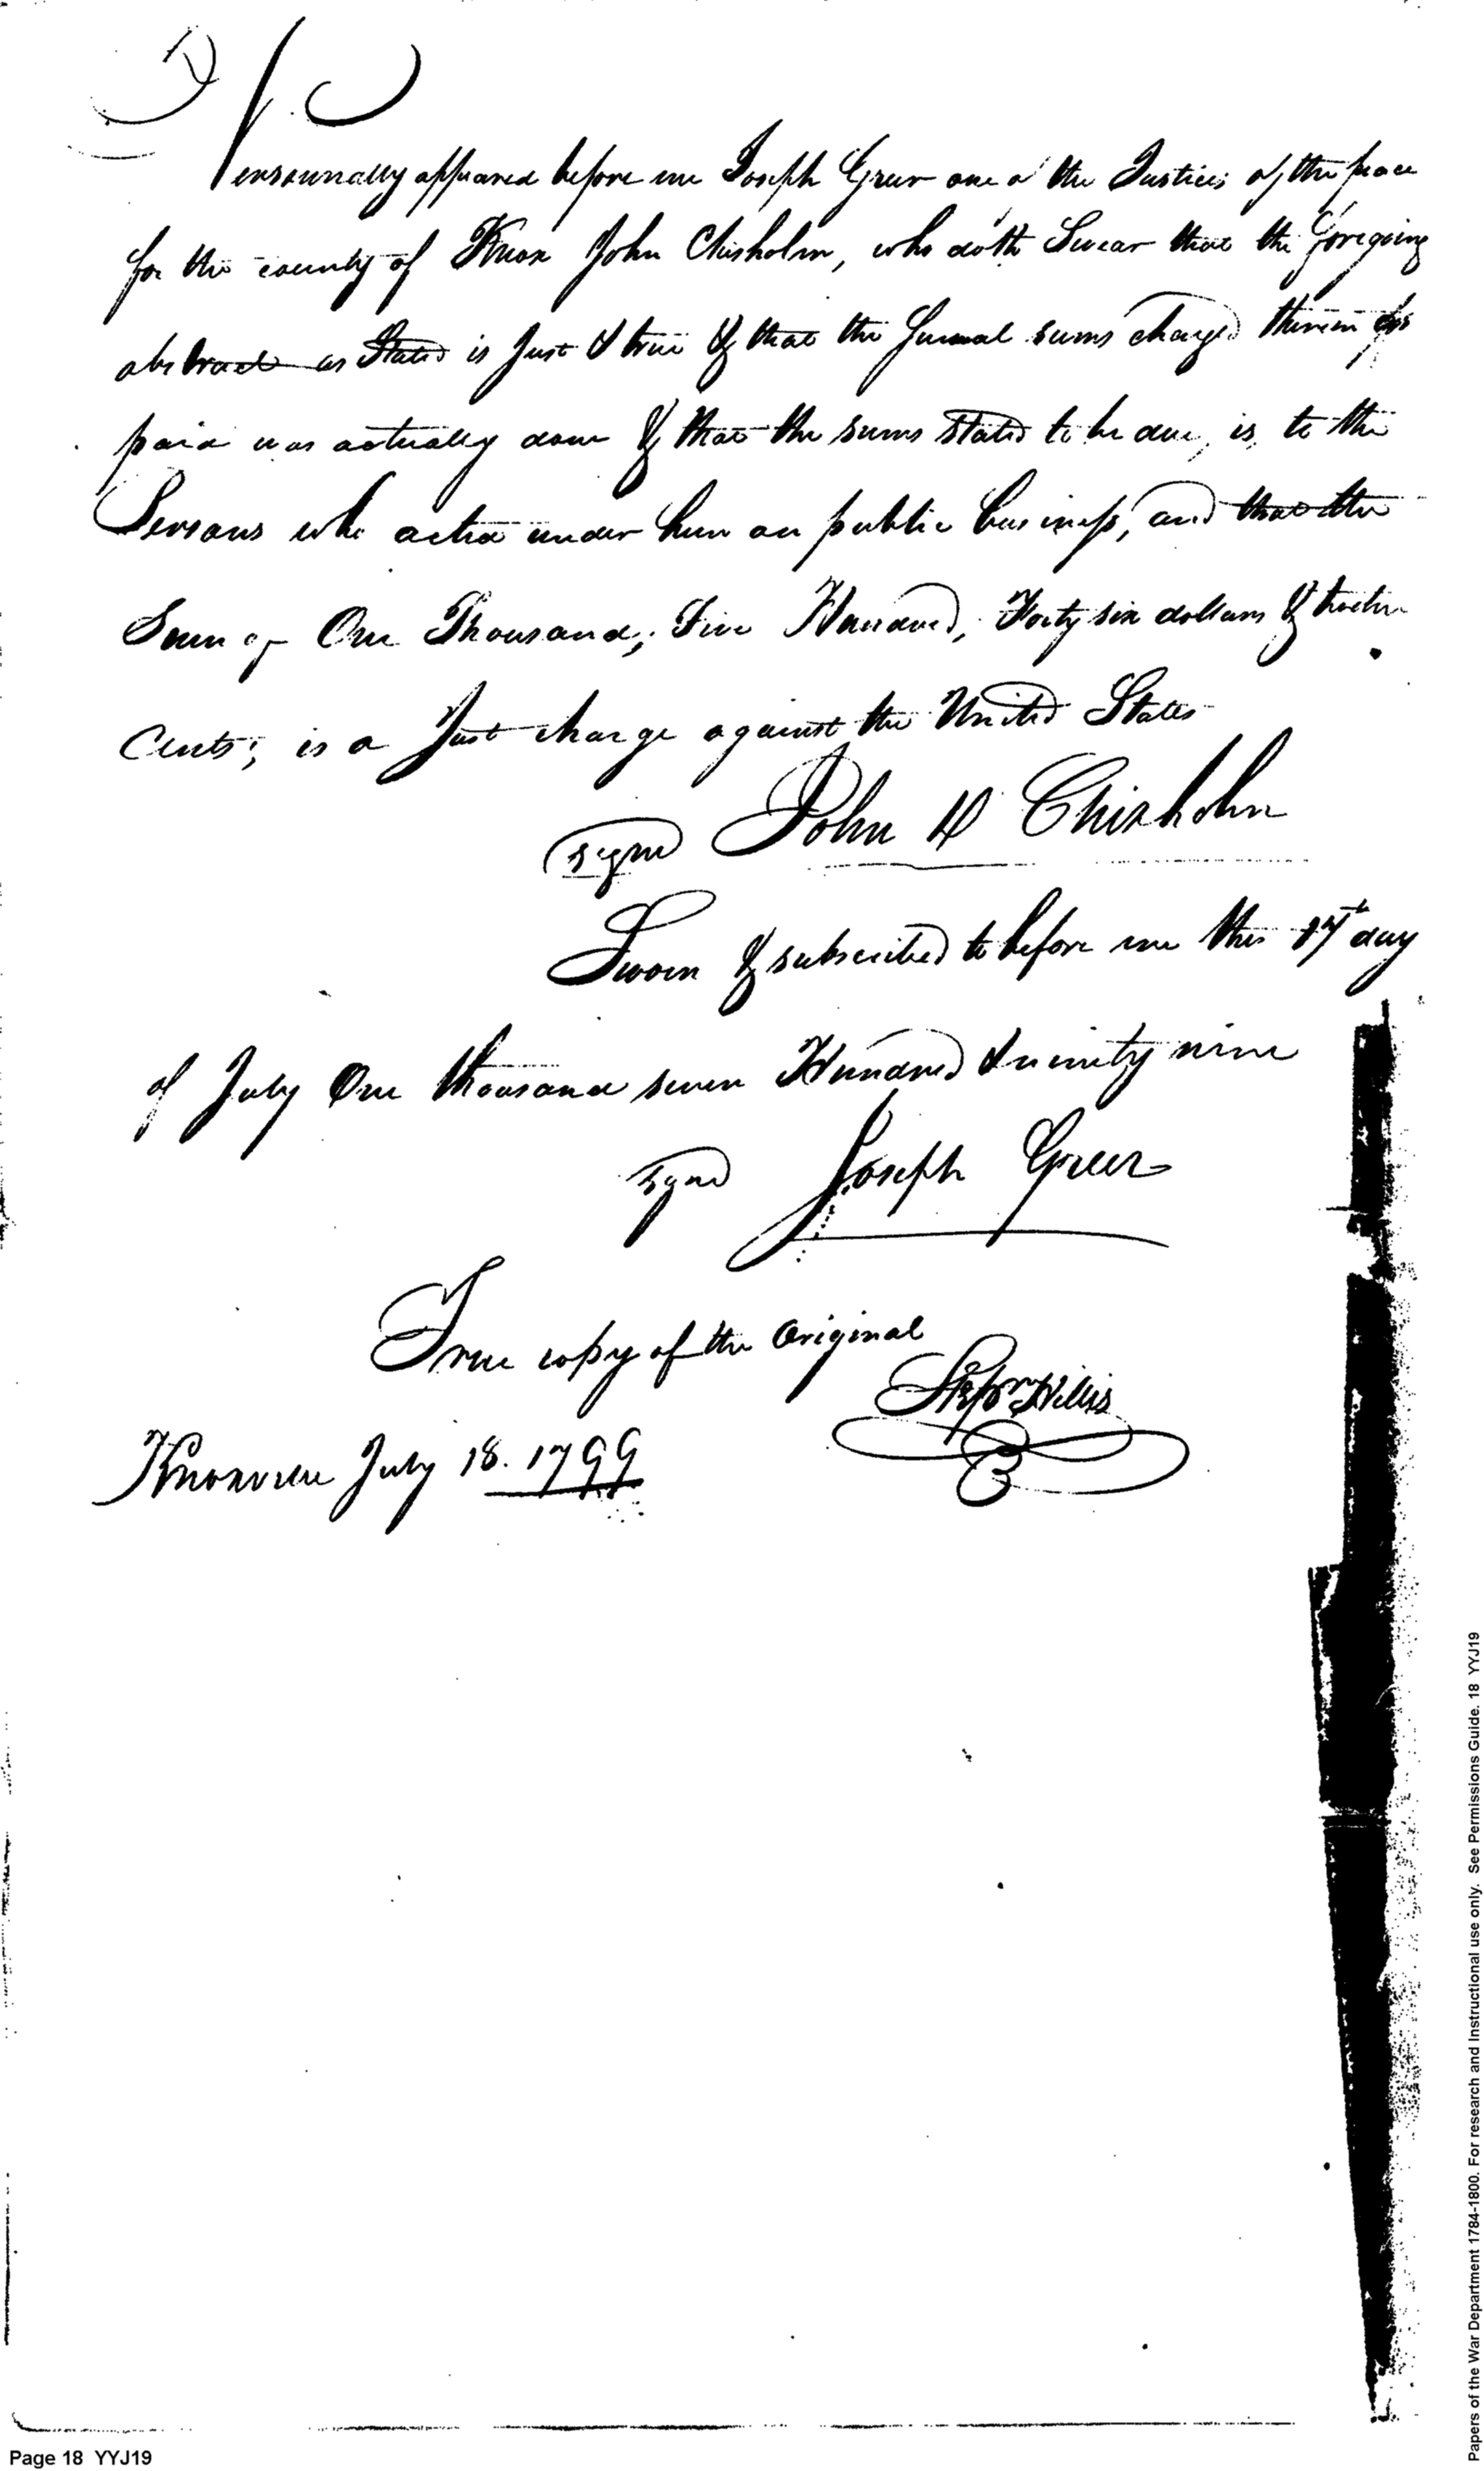 Personnally appeared before me Joseph Greer one of the Justices of the peace
for the county of Knox John Chisholm, who doth Swear that the foregoing
abstract as Stated is Just & true & that the several sums charged therein as
paid was actually done & that the sums stated to be due, is, to the
Persons who acted under him on public business, and that the
Sum of One Thousand, Five Hundred, Forty six dollars & twelve
Cents; is a Just charge against the United States
signd John D Chisholm
Sworn & subscribed to before me this 17th day
of July One thousand seven Hundred & ninety nine
signd Joseph Greer
True copy of the Original
Hillis
Knoxville July 18. 1799
Page 18 YYJ19
Papers of the War Department 1784-1800. For research and Instructional use only. See Permissions Guide. 18 YYJ19